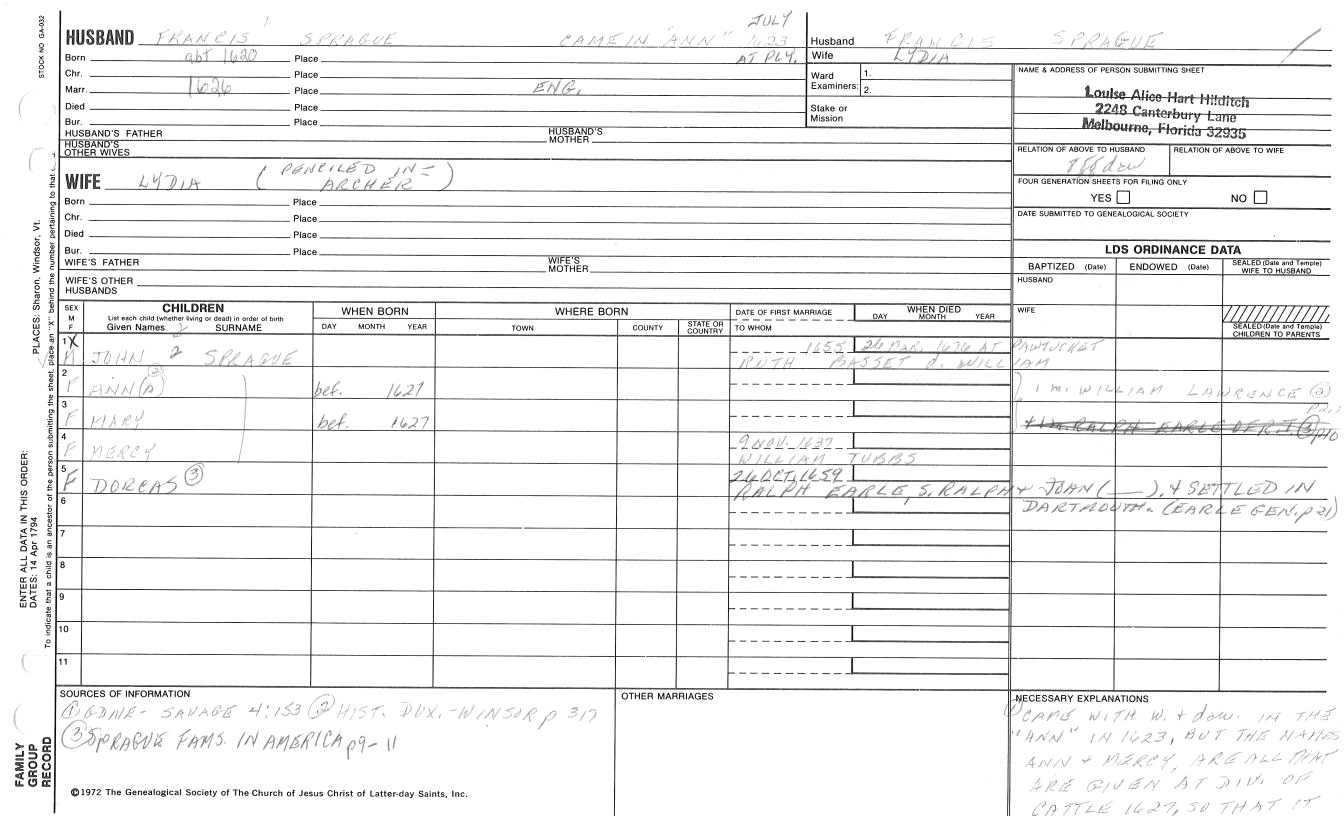 STOCK NO GA-032
HUSBAND FRANCIS SPRAGUE CAME IN "ANN" JULY 1623 AT PLY.
Born abt 1620 Place
Chr. Place
Marr. 1626 Place ENG.
Died Place
Bur. Place
HUSBAND'S FATHER HUSBAND'S MOTHER
HUSBAND'S OTHER WIVES
Husband FRANCIS SPRAGUE
Wife LYDIA
Ward Examiners: 1.
2.
Stake or Mission
NAME & ADDRESS OF PERSON SUBMITTING SHEET
Louise Alice Hart Hilditch
2248 Canterbury Lane
Melbourne, Florida 32935
RELATION OF ABOVE TO HUSBAND RELATION OF ABOVE TO WIFE
FOUR GENERATION SHEETS FOR FILING ONLY
YES NO
DATE SUBMITTED TO GENEALOGICAL SOCIETY
WIFE LYDIA (PENCILED IN = ARCHER)
Born Place
Chr. Place
Died Place
Bur. Place
WIFE'S FATHER WIFE'S MOTHER
WIFE'S OTHER HUSBANDS
LDS ORDINANCE DATA
BAPTIZED (Date) ENDOWED (Date) SEALED (Date and Temple) WIFE TO HUSBAND
HUSBAND
WIFE
SEALED (Date and Temple) CHILDREN TO PARENTS
SEX M F
CHILDREN
List each child (whether living or dead) in order of birth
Given Names SURNAME
WHEN BORN
DAY MONTH YEAR
WHERE BORN
TOWN COUNTY STATE OR COUNTRY
DATE OF FIRST MARRIAGE
TO WHOM
WHEN DIED
DAY MONTH YEAR
1 X M JOHN 2 SPRAGUE 1655 26 MAR. 1676 AT PAWTUCKET
RUTH BASSET d. WILLIAM
2 F ANN(A) (3) bef. 1627 1 m. WILLIAM LAWRENCE (2)
3 F MARY bef. 1627 1 m. RALPH EARLE OF R.I. (3) p10
4 F MERCY 9 NOV. 1637
WILLIAM TUBBS
5 F DORCAS (3) 26 OCT, 1659
RALPH EARLE, S. RALPH + JOAN (__). + SETTLED IN
DARTMOUTH. (EARLE GEN. p 21)
6
7
8
9
10
11
SOURCES OF INFORMATION
(1) GDNE- SAVAGE 4:153 (2) HIST. DUX.-WINSOR p 317
(3) SPRAGUE FAMS. IN AMERICA p9-11
OTHER MARRIAGES
NECESSARY EXPLANATIONS
(1) CAME WITH W. + dau. IN THE
"ANN" IN 1623, BUT THE NAMES
ANN + MERCY, ARE ALL THAT
ARE GIVEN AT DIV. OF
CATTLE 1627, SO THAT IT
©1972 The Genealogical Society of The Church of Jesus Christ of Latter-day Saints, Inc.
FAMILY GROUP RECORD
ENTER ALL DATA IN THIS ORDER:
DATES: 14 Apr 1794
PLACES: Sharon, Windsor, Vt.
To indicate that a child is an ancestor of the person submitting the sheet, place an "X" behind the number pertaining to that